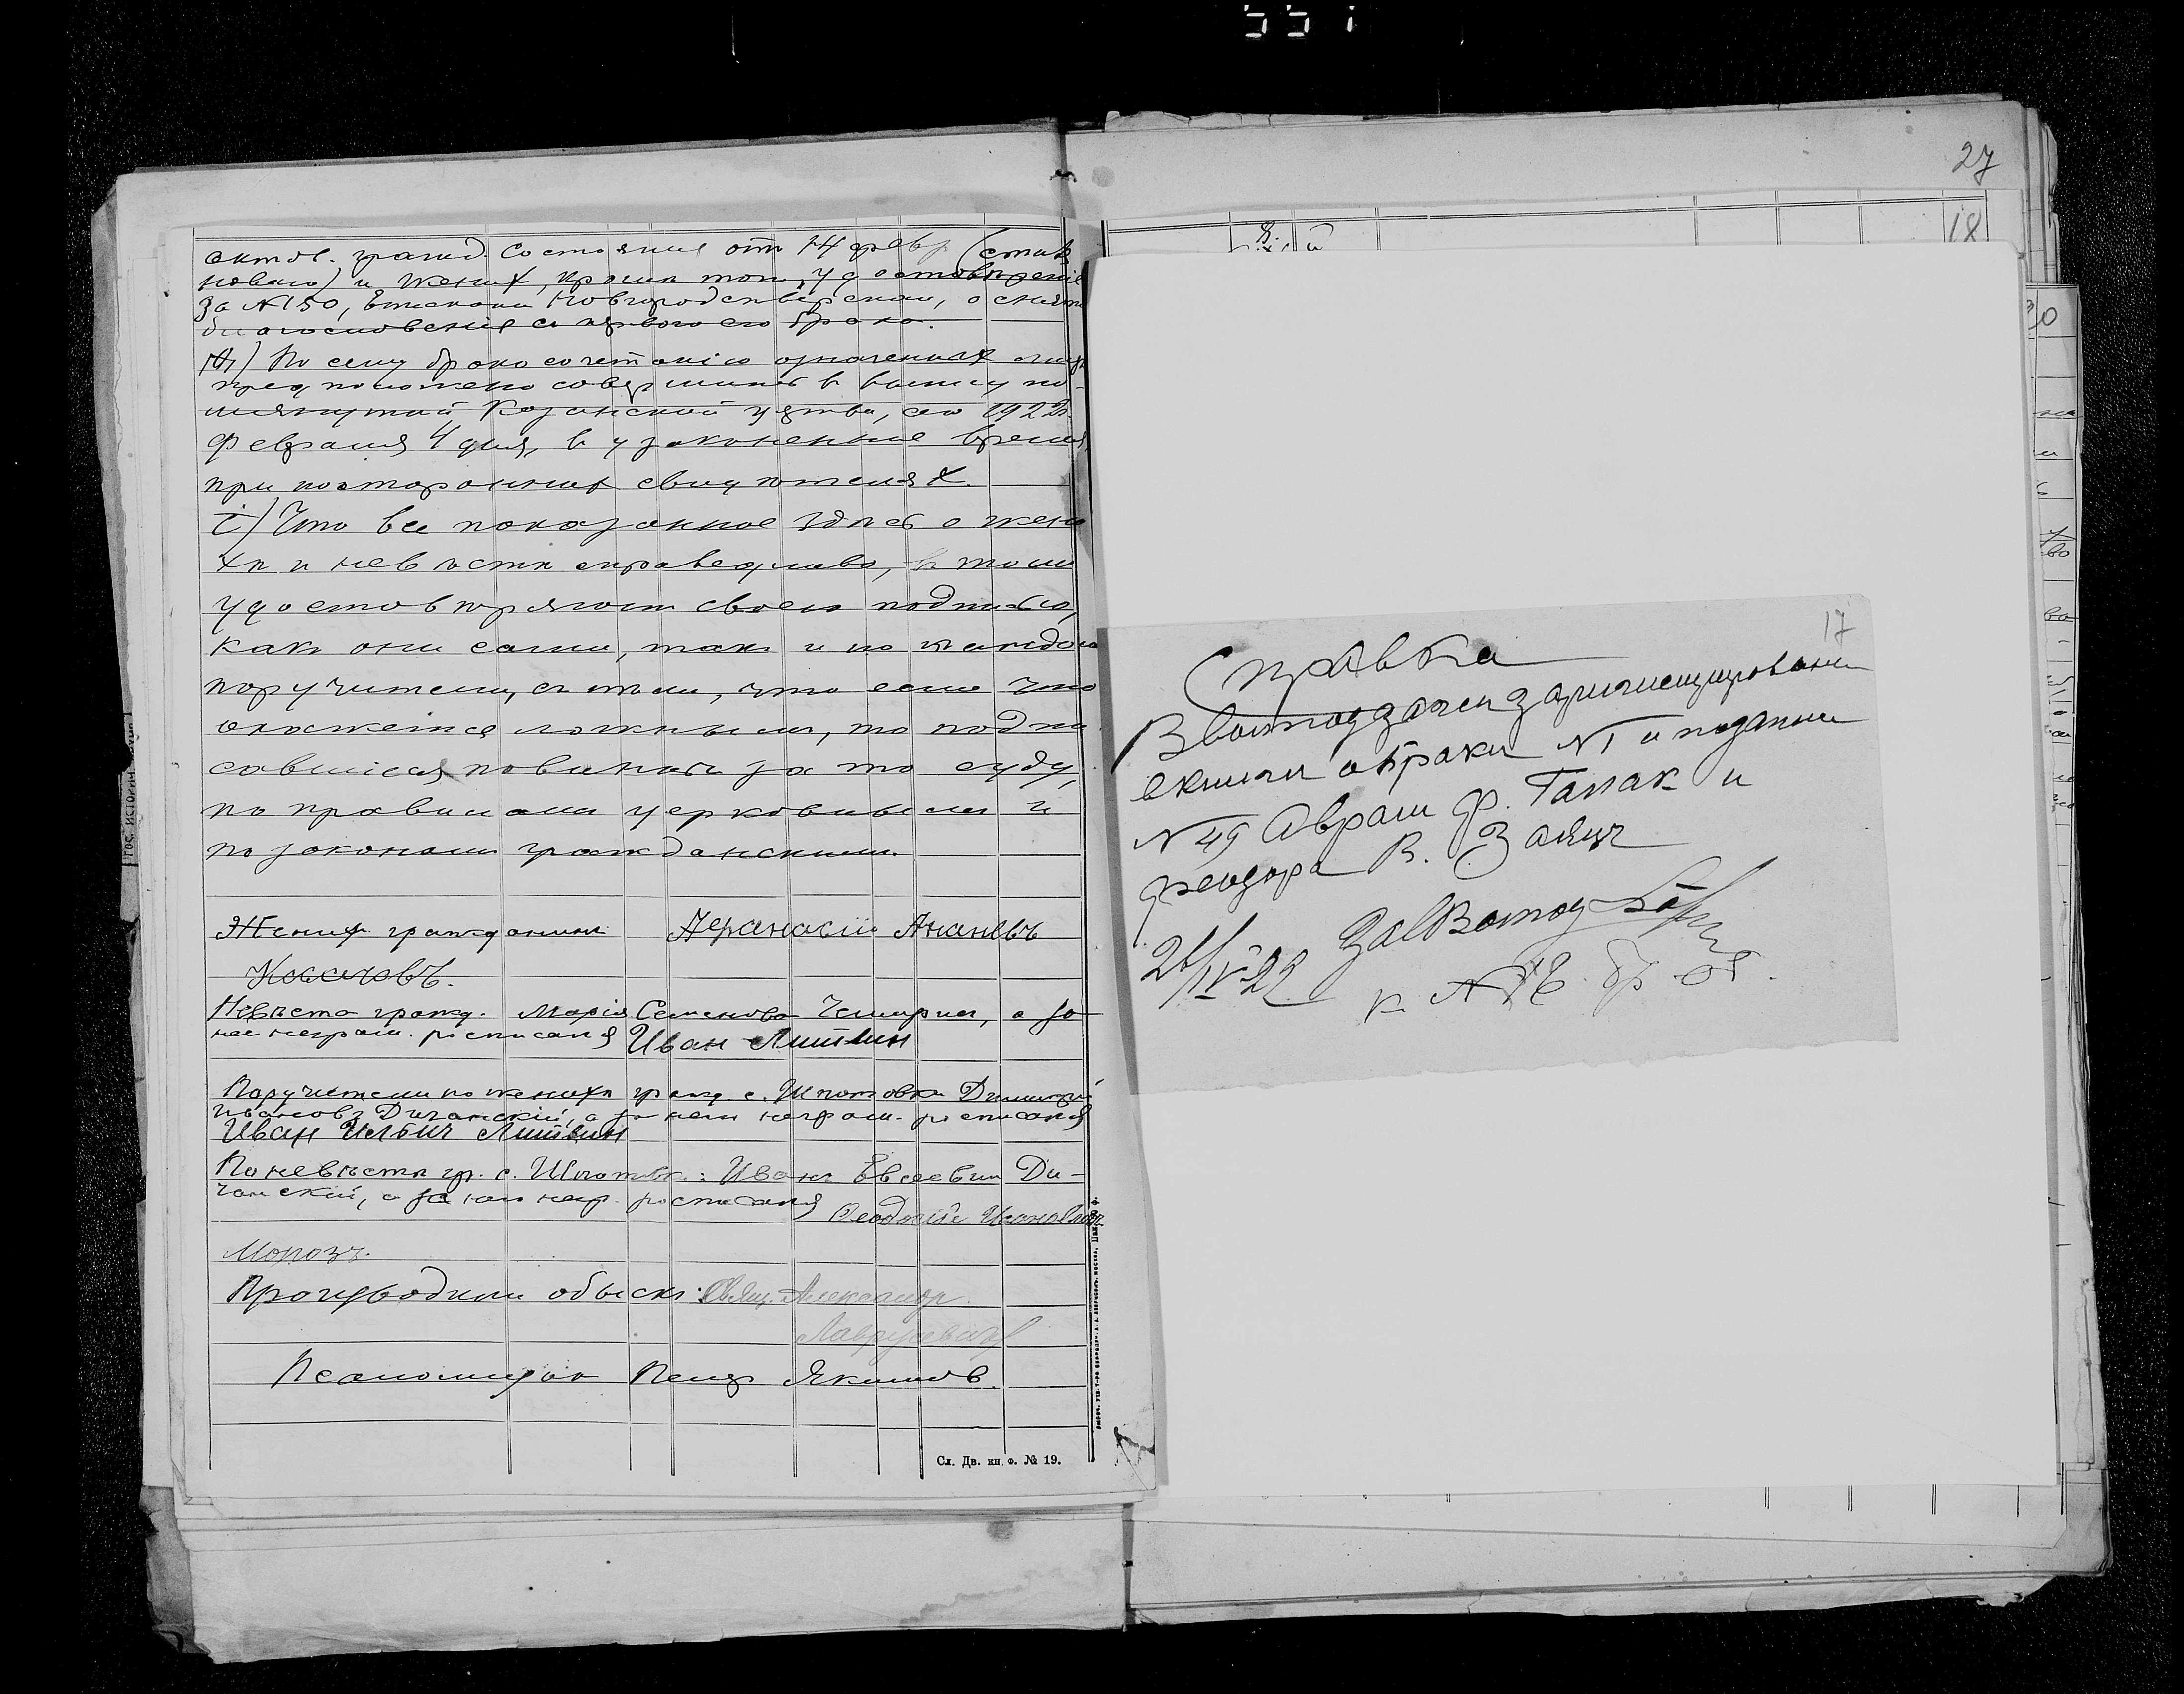 551
27
18
актов. гражд. Состоянія отъ 14 февр (стиля
новаго) и женихъ, кромѣ того, удостовѣреніе
За №150, Епископа Новгородсѣверскаго, о снятіи
благословенія съ перваго его брака.
По сему бракосочетаніе означенныхъ лицъ
предположено совершить въ выше упо-
мянутой Казанской церкви, сего 1922г.
Февраля 4 дня, въ узаконенное время
при постороннихъ свидѣтеляхъ.
і) Что все показанное здѣсь о жени
хѣ и невѣстѣ справедливо, въ томъ
удостовѣряютъ своею подписью,
какъ они сами, такъ и по каждомъ
поручители, съ тѣмъ, что если что
окажется ложнымъ, то подпи
савшіеся повинны за то суду,
по правиламъ церковнымъ и
по законамъ гражданскимъ.
Женихъ гражданинъ Афанасій Ананьевъ
Невѣста гражд. Марія Семенова, а за
нее неграм. росписался Иван Литвин
Поручители по женихѣ гражд. с. Шпотовки Димитрій
Ивановъ Дичанскій, а за него неграм. росписался
Иван Ильич Литвин
По невѣстѣ гр. с. Шпотовки: Иванъ Евсеевичъ Ди-
чанскій, а за него негр. росписался
Феодосій Ивановичъ
Морозъ.
Производили обыскъ: Свящ. Александр
Псаломщикъ Петр Якимов.
Сл. Дв. кн. Ф. № 19.
17
Справка
В волподзагсе зарегистрирован
в книги о браки №1 и подании
№ 49 Аврам Ф. Галак и
Феодора В. Заяцъ
ЗавВолпод